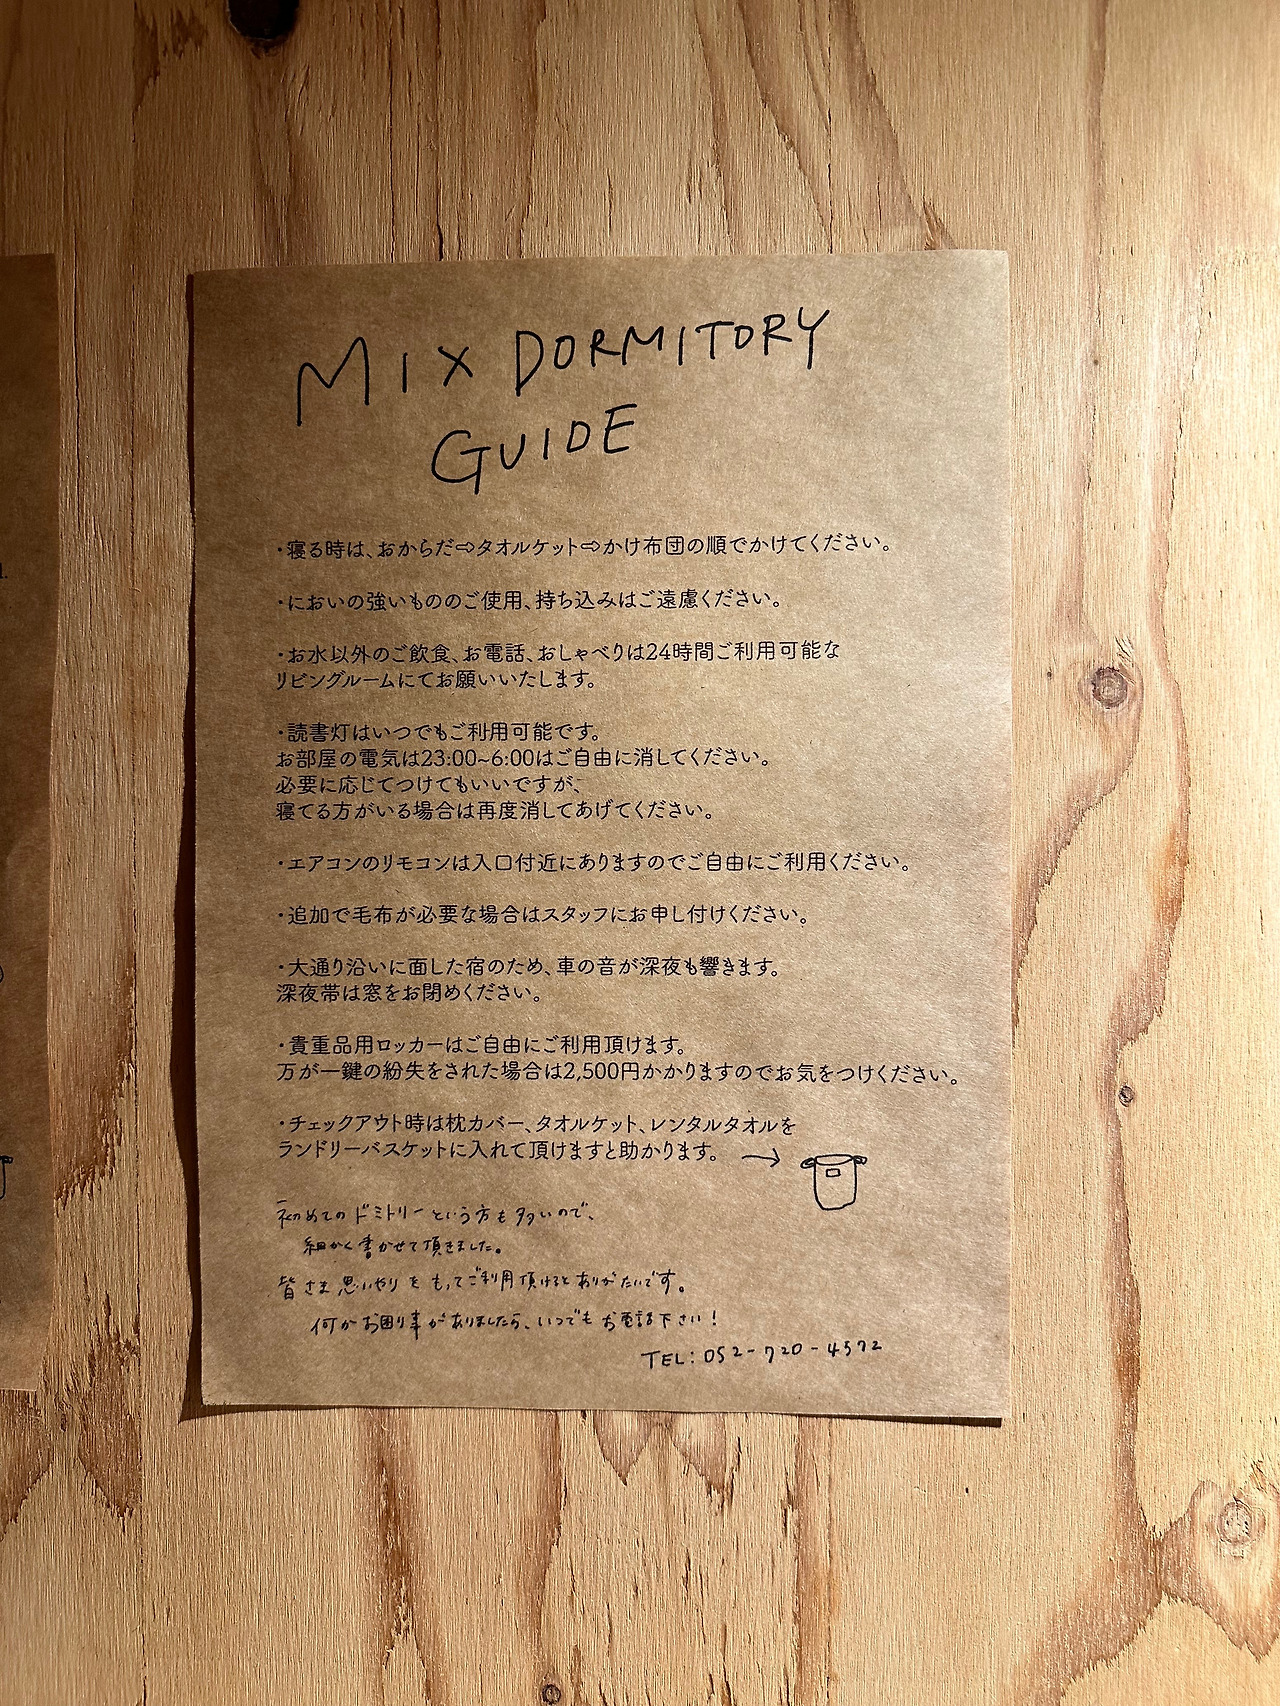 MIX DORMITORY
GUIDE
・寝る時は、おからだ⇨タオルケット⇨かけ布団の順でかけてください。
・においの強いもののご使用、持ち込みはご遠慮ください。
・お水以外のご飲食、お電話、おしゃべりは24時間ご利用可能な
リビングルームにてお願いいたします。
・読書灯はいつでもご利用可能です。
お部屋の電気は23:00~6:00はご自由に消してください。
必要に応じてつけてもいいですが、
寝てる方がいる場合は再度消してあげてください。
・エアコンのリモコンは入口付近にありますのでご自由にご利用ください。
・追加で毛布が必要な場合はスタッフにお申し付けください。
・大通り沿いに面した宿のため、車の音が深夜も響きます。
深夜帯は窓をお閉めください。
・貴重品用ロッカーはご自由にご利用頂けます。
万が一鍵の紛失をされた場合は2,500円かかりますのでお気をつけください。
・チェックアウト時は枕カバー、タオルケット、レンタルタオルを
ランドリーバスケットに入れて頂けますと助かります。 →
初めてのドミトリーという方も多いので、
細かく書かせて頂きました。
皆さま思いやりをもってご利用頂けるとありがたいです。
何かお困り事がありましたら、いつでもお電話下さい!
TEL:052-720-4572